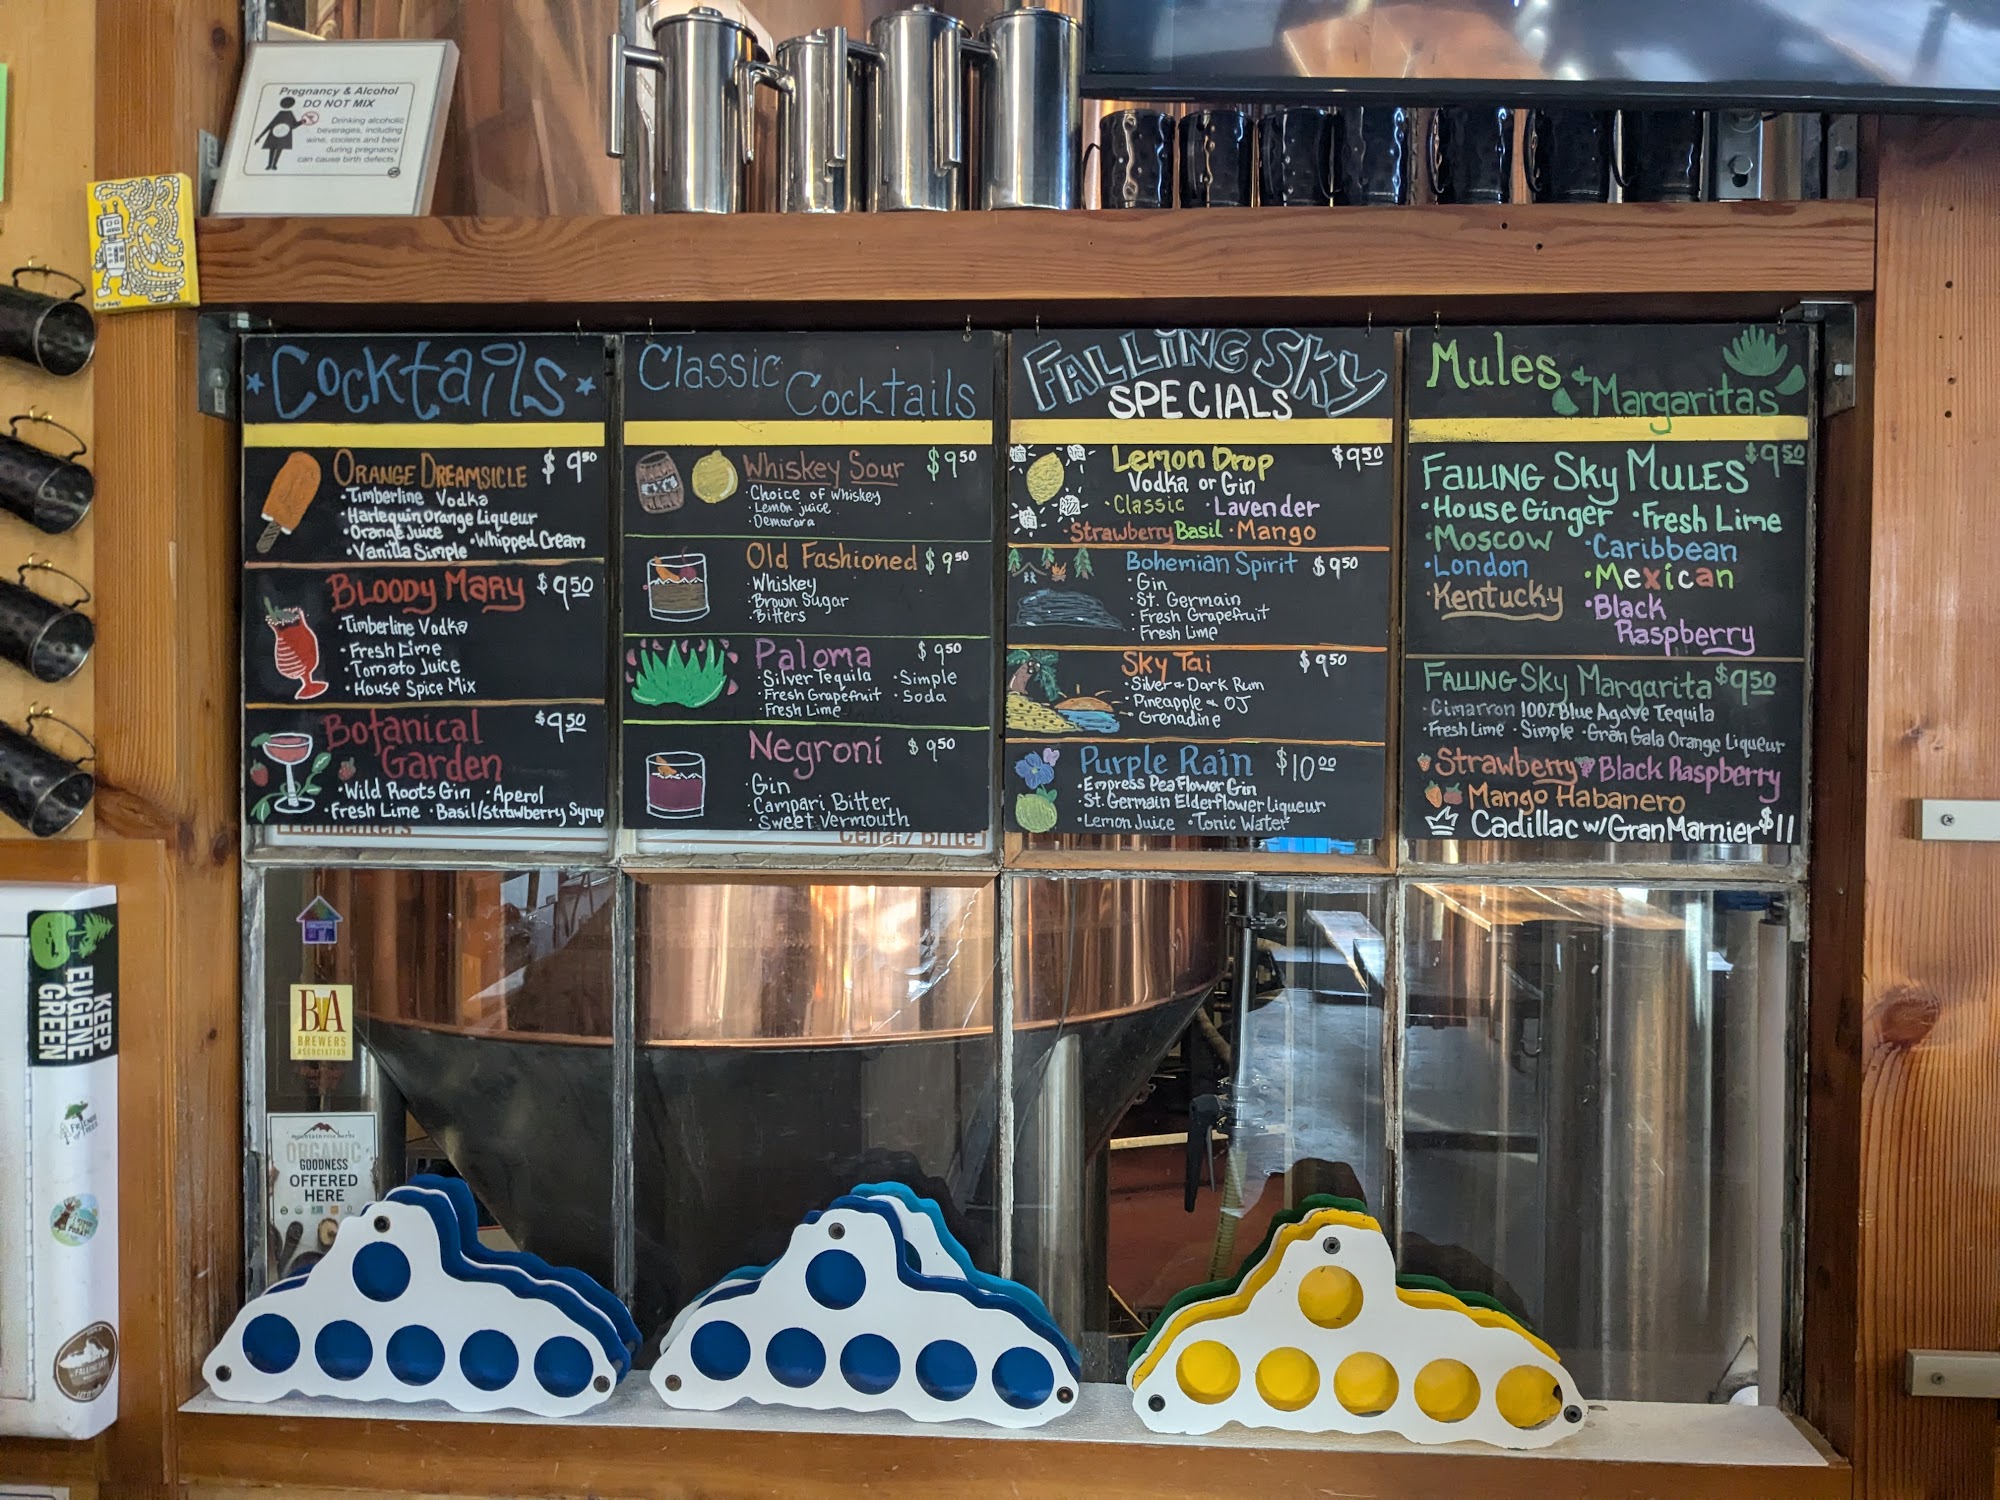 Pregnancy & Alcohol
DO NOT MIX
Drinking alcoholic
beverages, including
wine, coolers and beer
during pregnancy
can cause birth defects.
Cocktails
ORANGE DREAMSICLE $9.50
·Timberline Vodka
·Harlequin Orange Liqueur
·Orange Juice ·Whipped Cream
·Vanilla Simple
BLOODY MARY $9.50
·Timberline Vodka
·Fresh Lime
·Tomato Juice
·House Spice Mix
Botanical Garden $9.50
·Wild Roots Gin ·Aperol
·Fresh Lime ·Basil/Strawberry Syrup
Classic Cocktails
Whiskey Sour $9.50
·Choice of Whiskey
·Lemon Juice
·Demarara
Old Fashioned $9.50
·Whiskey
·Brown Sugar
·Bitters
Paloma $9.50
·Silver Tequila ·Simple
·Fresh Grapefruit ·Soda
·Fresh Lime
Negroni $9.50
·Gin
·Campari Bitter
·Sweet Vermouth
FALLING SKY
SPECIALS
Lemon Drop $9.50
Vodka or Gin
·Classic ·Lavender
·Strawberry Basil ·Mango
Bohemian Spirit $9.50
·Gin
·St. Germain
·Fresh Grapefruit
·Fresh Lime
Sky Tai $9.50
·Silver & Dark Rum
·Pineapple & OJ
·Grenadine
Purple Rain $10.00
·Empress Pea Flower Gin
·St. Germain Elderflower Liqueur
·Lemon Juice ·Tonic Water
Mules & Margaritas
FALLING SKY MULES $9.50
·House Ginger ·Fresh Lime
·Moscow ·Caribbean
·London ·Mexican
·Kentucky ·Black
Raspberry
FALLING SKY Margarita $9.50
·Cimarron 100% Blue Agave Tequila
·Fresh Lime ·Simple ·Gran Gala Orange Liqueur
Strawberry Black Raspberry
Mango Habanero
Cadillac w/Gran Marnier $11
Fermenters
Cellar/Brite
KEEP
EUGENE
GREEN
BA
BREWERS
ASSOCIATION
mountain rose herbs
ORGANIC
GOODNESS
OFFERED
HERE
FRIENDS
OF TREES
FALLING SKY